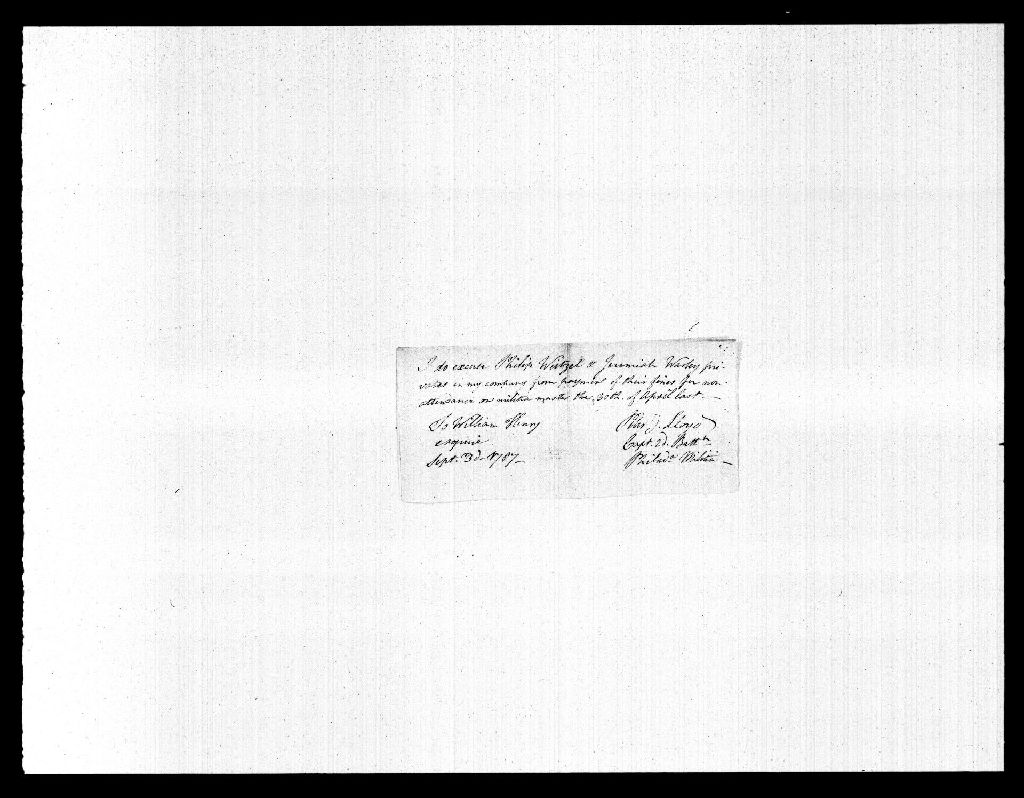 I do excuse Philip Weitzel & Jeremiah pri-
vates in my company from payment of their fines for non-
attendance on militia muster the 30th. of April last. —
To William Henry
esquire
Sept. 3d. 1787 —
Lloyd
Capt. 2d. Battn.
Philada. Militia —